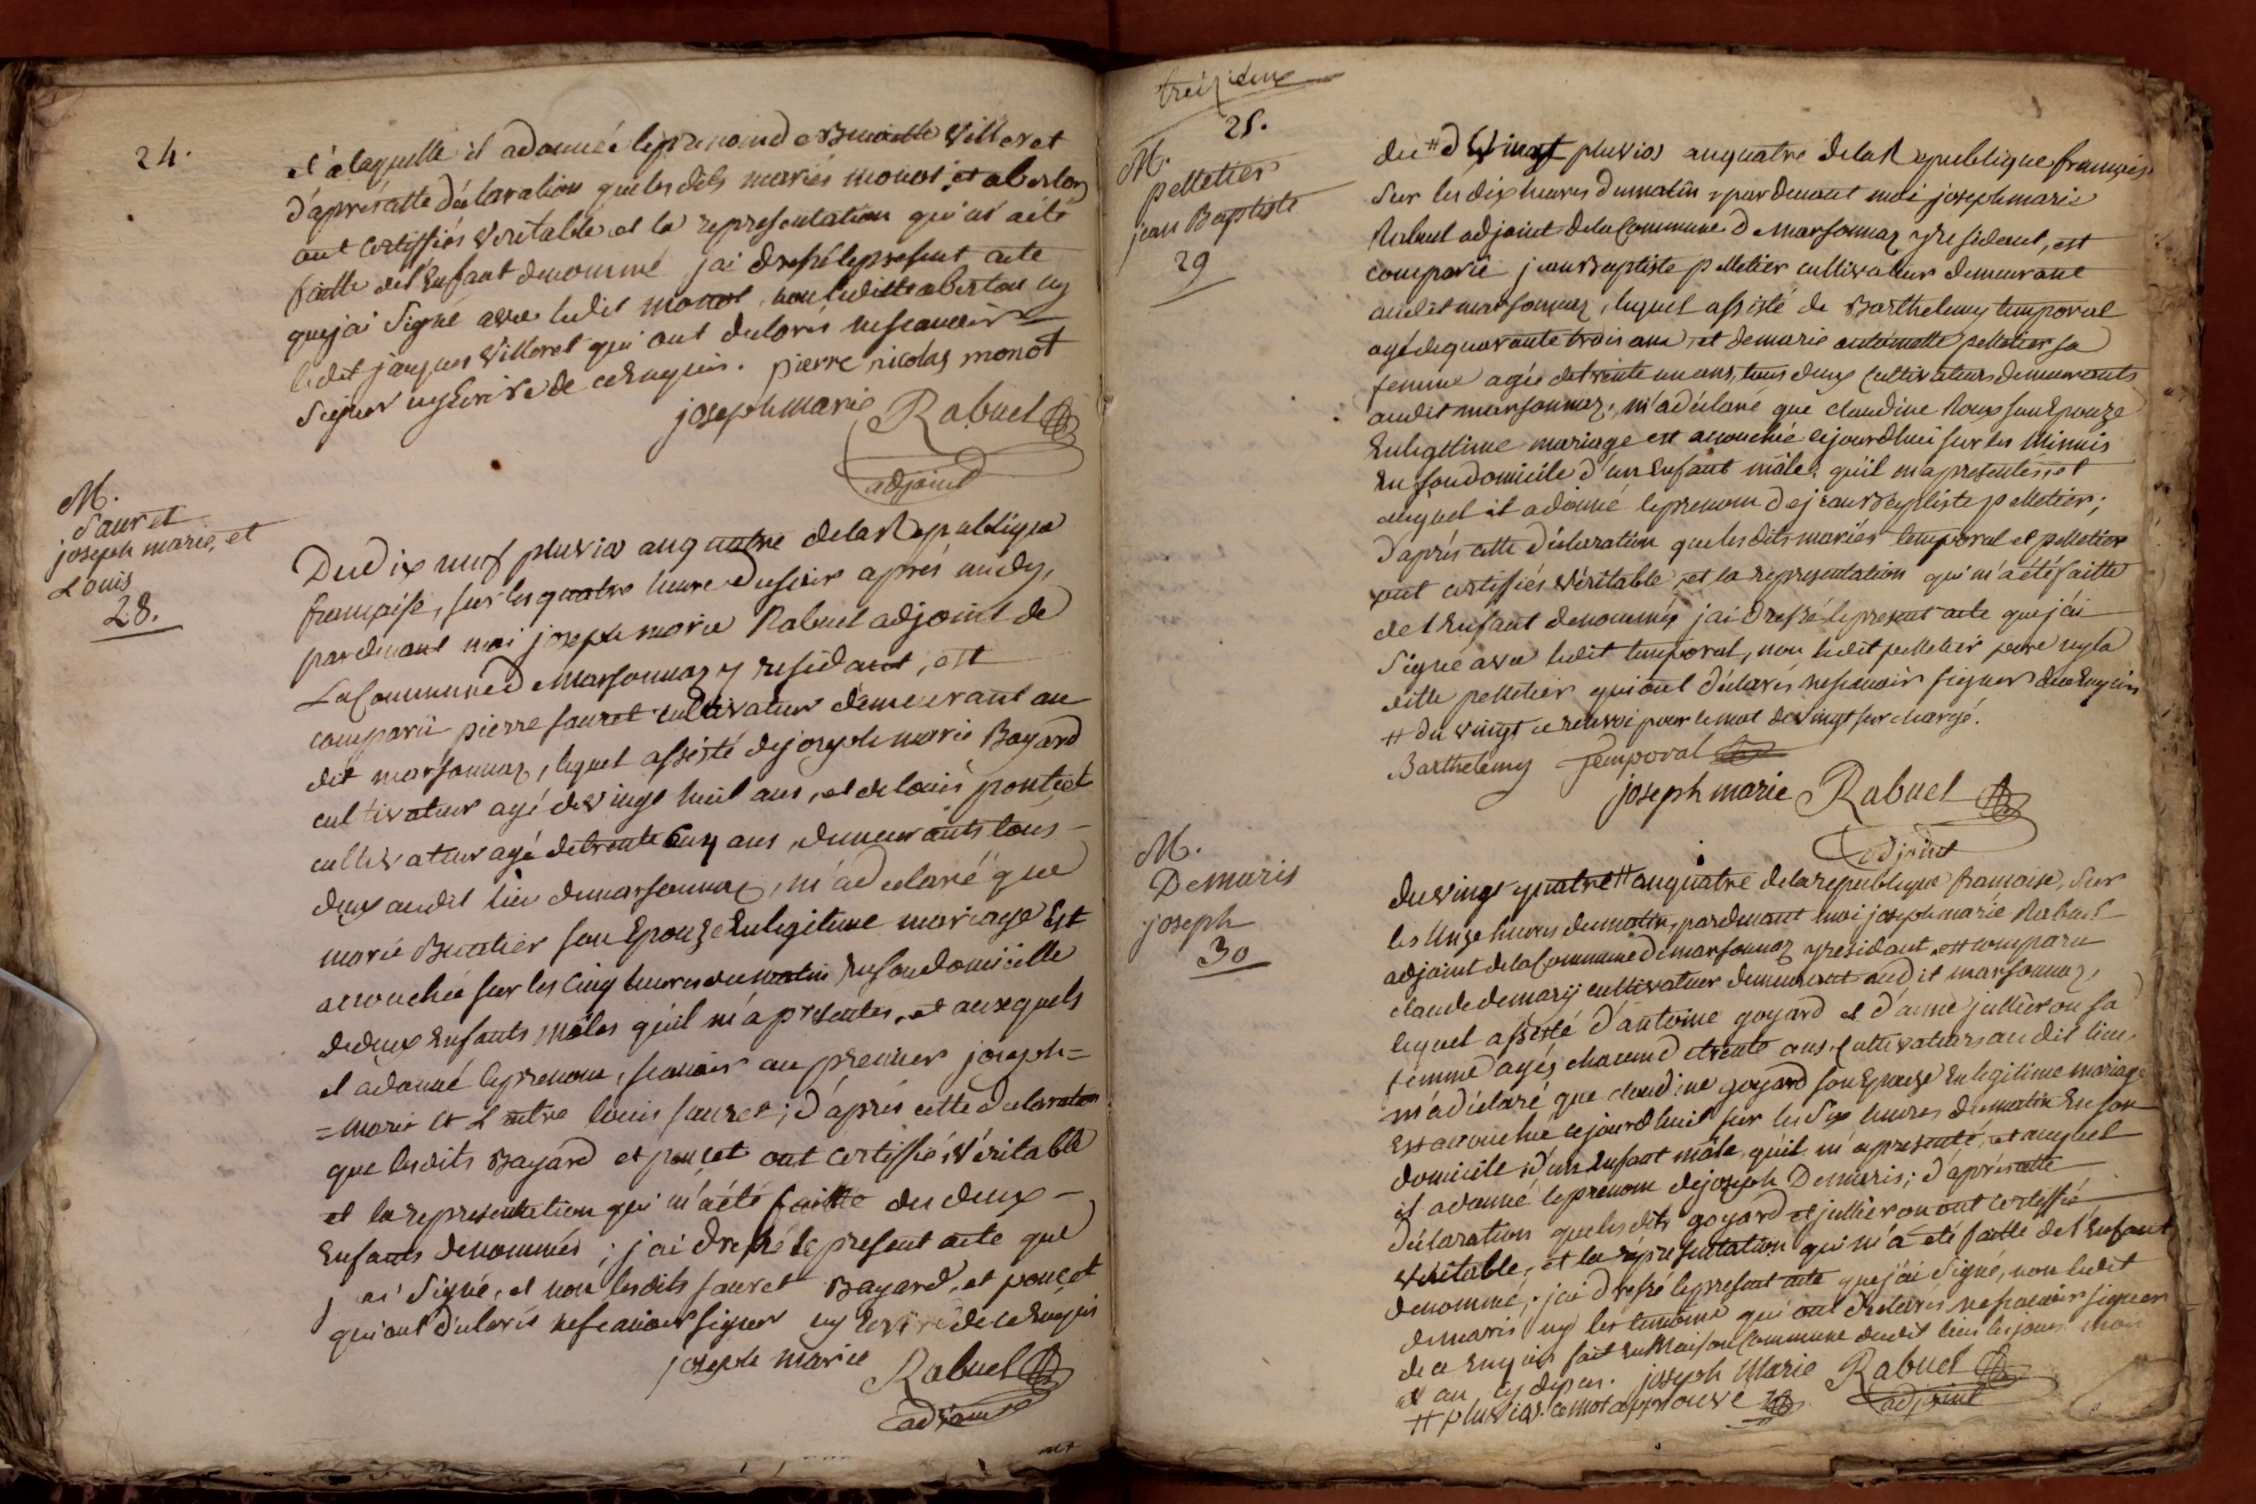 24.
et a laquelle il a donnée le prenom de Villeret
d'après cette déclaration que les dits mariés monot, et aberlon
ont certiffiés veritable, et la representation qui m'a été
faitte del'Enfant denommé jai dressé le present acte
que jai Signé avec ledit monot, non ledit aberton ny
ledit jacques Villeret qui ont declarés ne scavoir
Signer ny Ecrire de ce Enquis. pierre nicolas monot
joseph marie Rabuel
adjoint
M.
Sauret
joseph marie, et
Louis
28.
Du dix neuf pluvio an quatre de la Republique
française, sur les quatre heure du soir après midy,
pardevant moi joseph marie Rabuel adjoint de
La Commune de Marsonnaz y residant, est
comparu pierre sauret cultivateur demeurant au
dit marsonnaz, lequel assisté de joseph marie Bayard
cultivateur agé de vingt huit ans, et de louis poncet
cultivateur agé de trente ans, demeurants tous
deux audit lieu de marsonnaz, m'a declaré que
marie son Epouze En legitime mariage Est
accouchée sur les Cinq heures du matin En son domicille
de deux Enfants mâles qu'il m'a presentés, et auxquels
il a donné le prenom, scavoir au premier joseph=
=marie et L'autre louis sauret; d'après cette declaration
que les dits Bayard et poncet ont certiffiés Véritable
et la representation qui m'a été faitte des deux
Enfants denommés; j'ai dressé le present acte que
j'ai Signé, et non les dits sauret Bayard, et poncet
qui ont declarés ne scavoir signer ny Ecrire de ce Enquis
joseph marie Rabuel
adjoint
treizieme
25.
M.
pelletier
jean Baptiste
29
du # de Vingt pluvios an quatre de la Republique française
Sur les dix heures du matin, pardevant moi joseph marie
Rabuel adjoint de la Commune de marsonnaz y residant, est
comparû jean Baptiste pelletier cultivateur demeurant
audit marsonnaz, lequel assisté de Barthelemy temporal
agé de quarante trois ans, et de marie antoinette pelletier sa
femme agée de trente un ans, tous deux Cultivateurs demeurants
audit marsonnaz, m'a déclaré que claudine Roux son Epouze
En legitime mariage est accouchée cejourdhui sur les Minuis
En son domicile d'un Enfant mâle, qu'il m'a presenté, et
auquel il a donné le prenom de jean Baptiste pelletier;
d'après cette déclaration que les dits mariés temporal et pelletier
ont certiffiés Véritable, et la representation qui m'a été faitte
de l'Enfant denommé, j'ai dressé le present acte que j'ai
Signé avec ledit temporal, non ledit pelletier pere ny la
ditte pelletier qui ont déclarés ne scavoir signer de ce Enquis
# du vingt ce renvoi pour le mot de vingt sur chargé.
Barthelemy Temporal
joseph marie Rabuel
adjoint
M.
Demaris
joseph
30
du vingt quatre # an quatre de la republique française, Sur
les Unze heures du matin, pardevant moi joseph marie Rabuel
adjoint de la Commune de marsonnaz y residant, est comparu
claude demarij cultivateur demeurant audit marsonnaz,
lequel assisté d'antoine goyard et d'anne jullieron sa
femme agés chacun de trente ans, Cultivateurs audit lieu,
m'a déclaré que claudine goyard son Epouze En legitime mariage
Est accouchée cejourdhuit sur les Six heures du matin En son
domicile d'un Enfant mâle, qu'il m'a presenté, et auquel
il a donné le prenom de joseph Demaris; d'après cette
déclaration que les dits goyard et jullieron ont certiffié
veritable, et la représentation qui m'a été faitte de l'Enfant
denommé, jai dressé le present acte que j'ai Signé, non ledit
demaris ny les temoins qui ont déclarés ne scavoir signer
de ce Enquis fait En Maison Commune dudit lieu les jour mois
et an cy dessus. joseph Marie Rabuel
# pluvios. ce mot approuvé adjoint